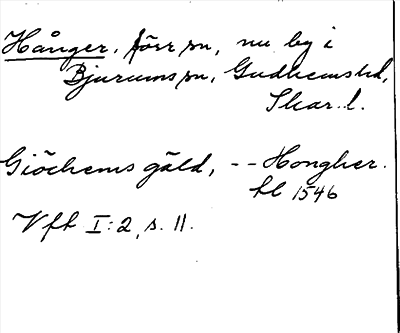 Hånger, förr sn, nu by i
Bjurums sn, Gudhems hd,
Skar. l.
Giöchems gäld, -- Hongher.
hl 1546
Vfk I:2, s. 11.